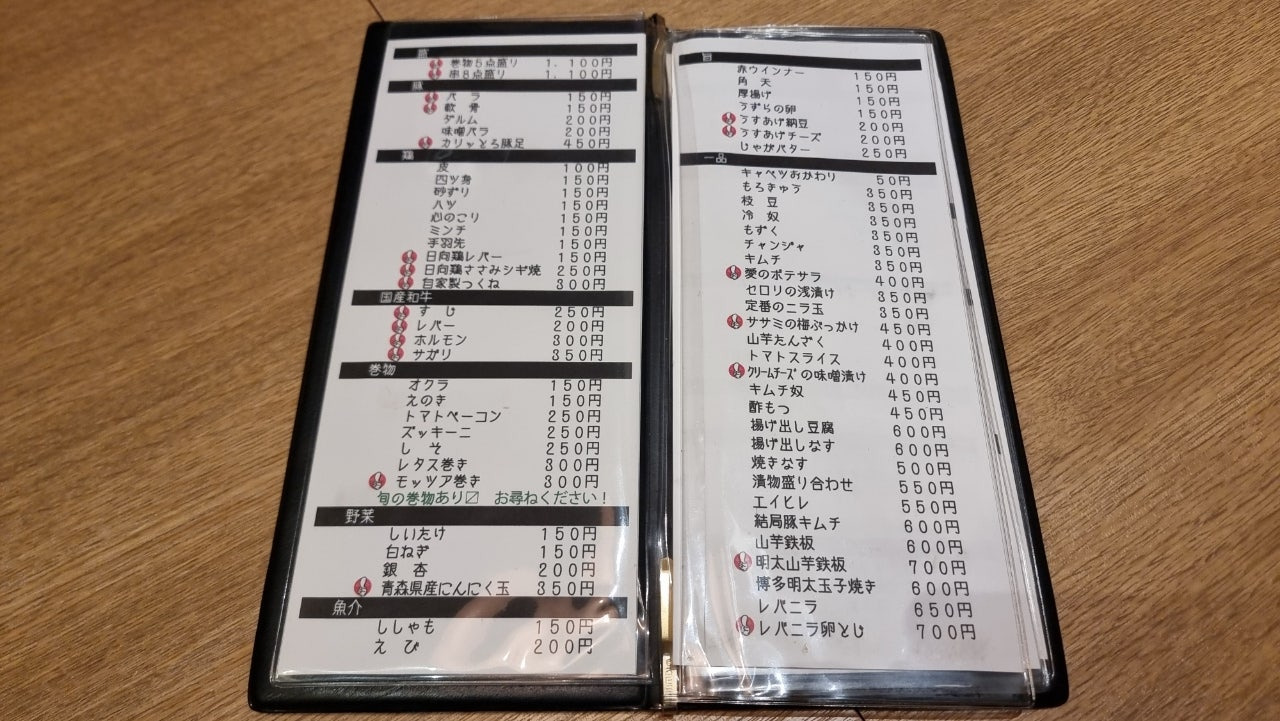 巻物5点盛り 1,100円
串8点盛り 1,100円
豚
バラ 150円
軟骨 150円
ダルム 200円
味噌バラ 200円
カリッとろ豚足 450円
鶏
皮 100円
四ツ身 150円
砂ずり 150円
ハツ 150円
心のこり 150円
ミンチ 150円
手羽先 150円
日向鶏レバー 150円
日向鶏ささみシギ焼 250円
自家製つくね 300円
国産和牛
すじ 250円
レバー 200円
ホルモン 300円
サガリ 350円
巻物
オクラ 150円
えのき 150円
トマトベーコン 250円
ズッキーニ 250円
しそ 250円
レタス巻き 300円
モッツア巻き 300円
旬の巻物あり〼 お尋ねください!
野菜
しいたけ 150円
白ねぎ 150円
銀杏 200円
青森県産にんにく玉 350円
魚介
ししゃも 150円
えび 200円
赤ウインナー 150円
角天 150円
厚揚げ 150円
うずらの卵 150円
うすあげ納豆 200円
うすあげチーズ 200円
じゃがバター 250円
一品
キャベツおかわり 50円
もろきゅう 350円
枝豆 350円
冷奴 350円
もずく 350円
チャンジャ 350円
キムチ 350円
愛のポテサラ 400円
セロリの浅漬け 350円
定番のニラ玉 350円
ササミの梅ぶっかけ 450円
山芋たんざく 400円
トマトスライス 400円
クリームチーズの味噌漬け 400円
キムチ奴 450円
酢もつ 450円
揚げ出し豆腐 600円
揚げ出しなす 600円
焼きなす 500円
漬物盛り合わせ 550円
エイヒレ 550円
結局豚キムチ 600円
山芋鉄板 600円
明太山芋鉄板 700円
博多明太玉子焼き 600円
レバニラ 650円
レバニラ卵とじ 700円